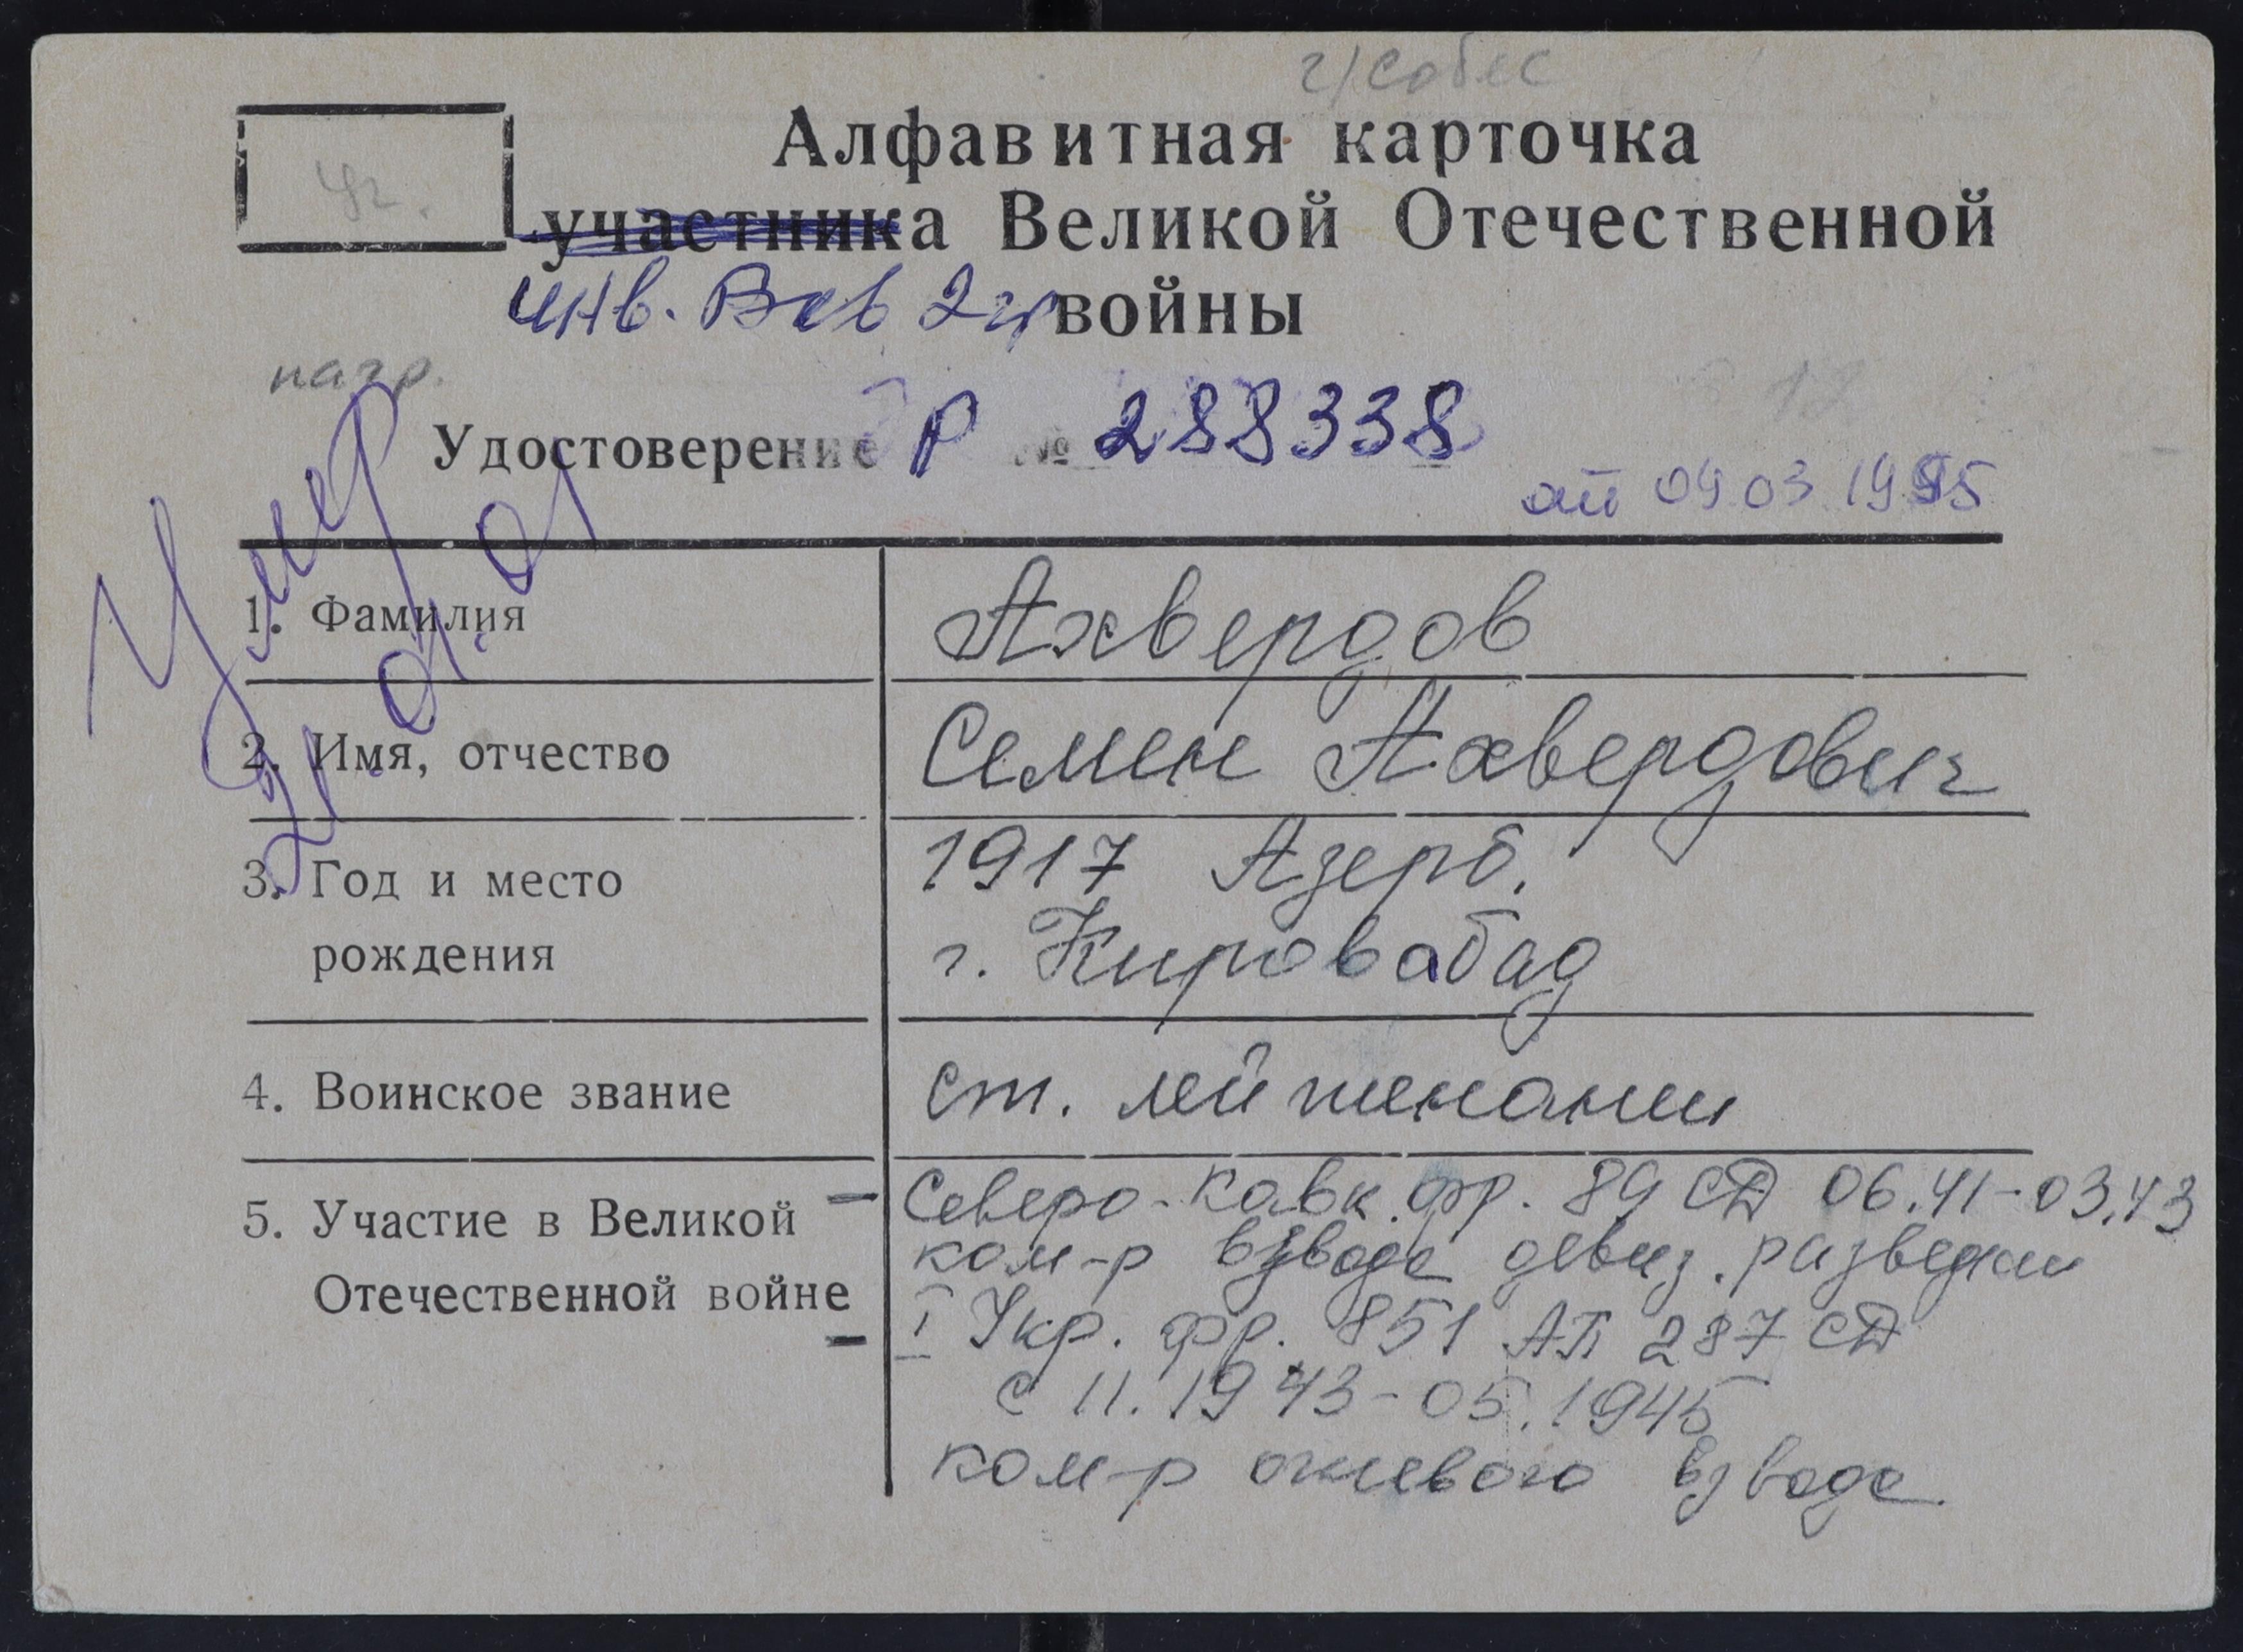 г/собес
Алфавитная карточка
участника Великой Отечественной
инв. Вов 2 гр войны
нагр.
Удостоверение Р № 288338
от 09.03.1995
Умер
21.01.01
1. Фамилия Ахвердов
2. Имя, отчество Семен Ахвердович
3. Год и место 1917 Азерб.
рождения г. Кировабад
4. Воинское звание ст. лейтенант
5. Участие в Великой Северо-Кавк. фр. 89 СД 06.41-03.43
ком-р взвода девиз. разведки
Отечественной войне I Укр. фр. 851 АП 287 СД
с 11.1943-05.1945
ком-р огневого взвода.